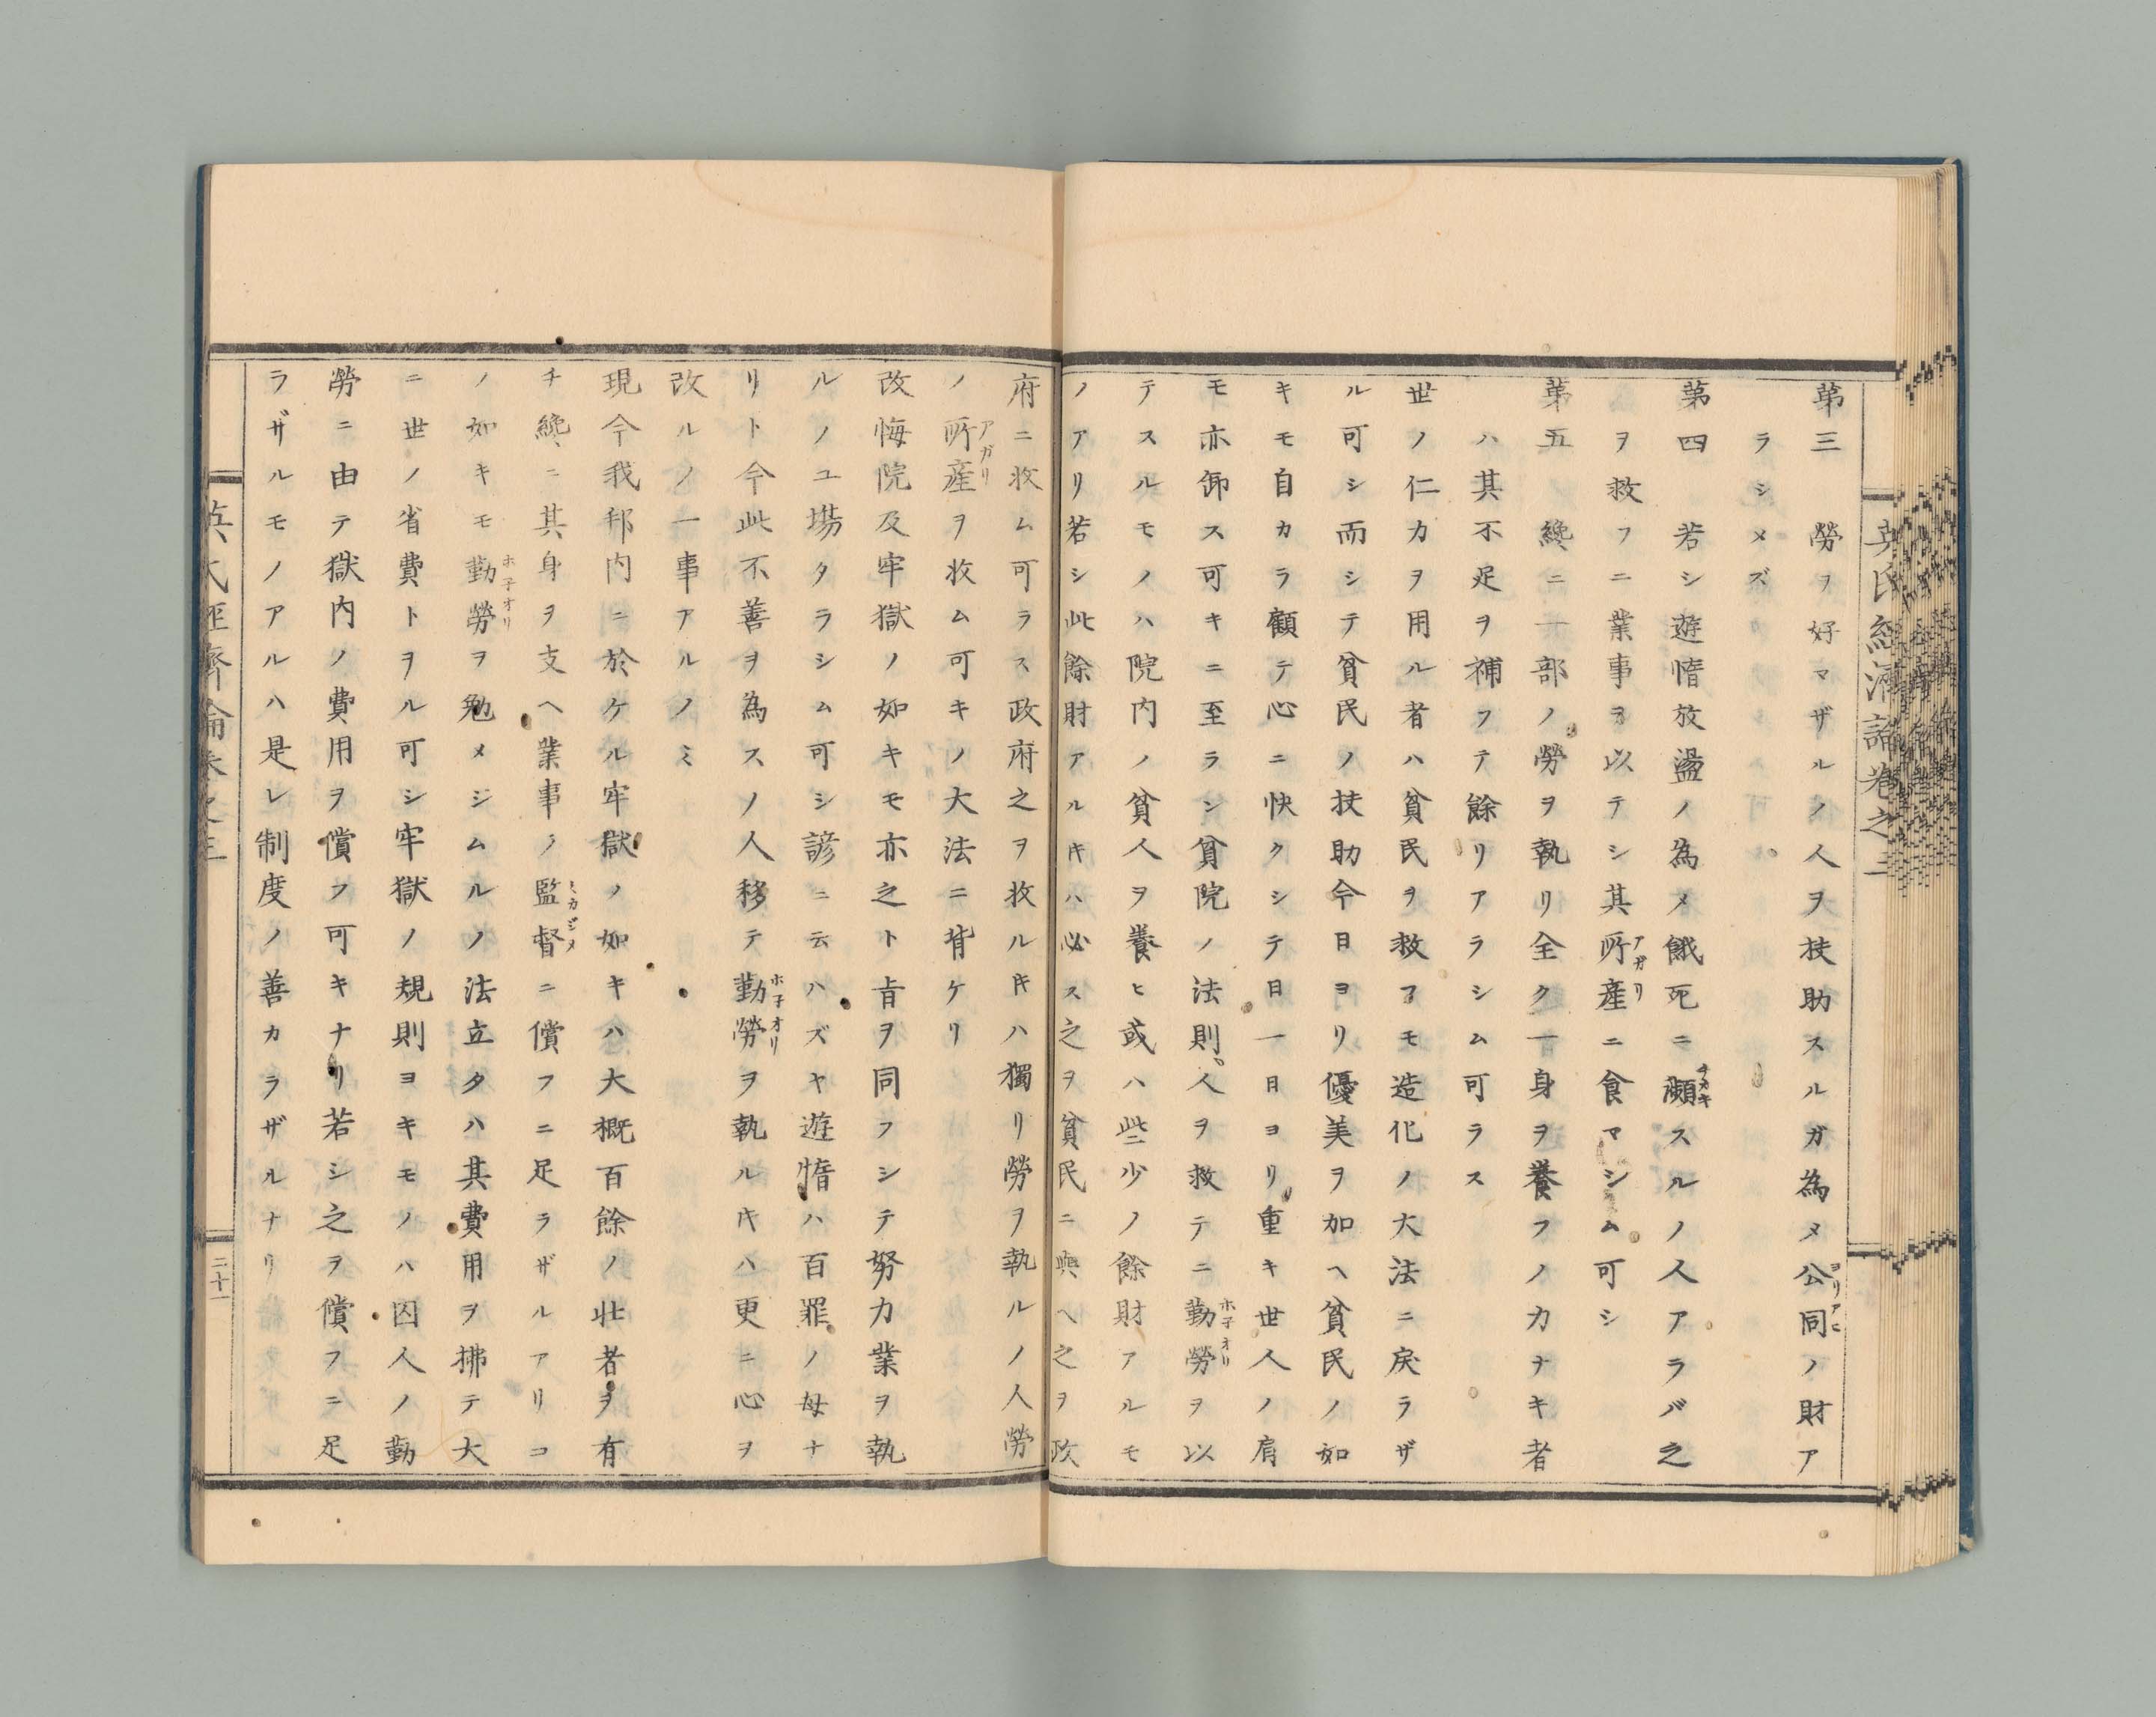 第三　勞ヲ好マザルノ人ヲ扶助スルガ為メ公同ノ財ア
ラシメズ
第四　若シ遊惰放盪ノ為メ餓死ニ瀕スルノ人アラバ之
ヲ救フニ業事ヲ以テシ其所産ニ食マシム可シ
第五　纔ニ一部ノ勞ヲ執リ全ク一身ヲ養フノカナキ者
ハ其不足ヲ補フテ餘リアラシム可ラス
世ノ仁カヲ用ル者ハ貧民ヲ救フモ造化ノ大法ニ戻ラザ
ル可シ而シテ貧民ノ扶助今日ヨリ優美ヲ加ヘ貧民ノ如
キモ自カラ顧テ心ニ快クシテ日一日ヨリ重キ世人ノ肩
モ亦卸ス可キニ至ラン貧院ノ法則人ヲ救テニ勤勞ヲ以
テスルモノハ院内ノ貧人ヲ養ヒ或ハ些少ノ餘財アルモ
ノアリ若シ此餘財アルキハ必ス之ヲ貧民ニ與ヘ之ヲ政
府ニ收ム可ラス政府之ヲ收ルキハ獨リ勞ヲ執ルノ人勞
ノ所産ヲ收ム可キノ大法ニ背ケリ
改悔院及牢獄ノ如キモ亦之ト旨ヲ同フシテ努力業ヲ執
ルノユ場タラシム可シ諺ニ云ハズヤ遊惰ハ百罪ノ母ナ
リト今此不善ヲ為スノ人移テ勤勞ヲ執ルキハ更ニ心ヲ
改ルノ一事アルノミ
現今我邦内ニ於ケル牢獄ノ如キハ大概百餘ノ壯者ヲ有
チ纔ニ其身ヲ支ヘ業事ノ監督ニ償フニ足ラザルアリコ
ノ如キモ勤勞ヲ勉メジムルノ法立タハ其費用ヲ拂テ大
ニ世ノ省費トヲル可シ牢獄ノ規則ヨキモノハ囚人ノ勤
勞ニ由テ獄内ノ費用ヲ償フ可キナリ若シ之ヲ償フニ足
ラザルモノアルハ是レ制度ノ善カラザルナリ
二十一